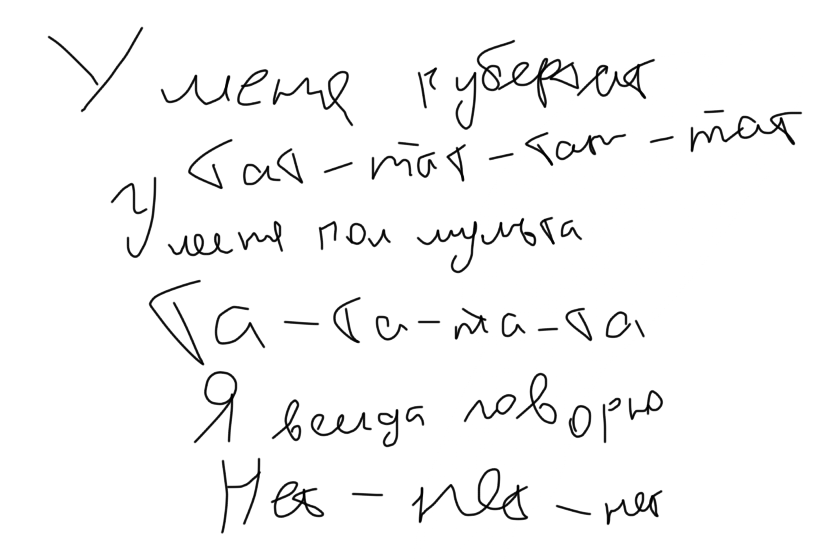 У меня губернат
у тат-тат-тат-тат
У меня пол мульта
Та-та-та-та
Я всегда говорю
Нет-нет-нет